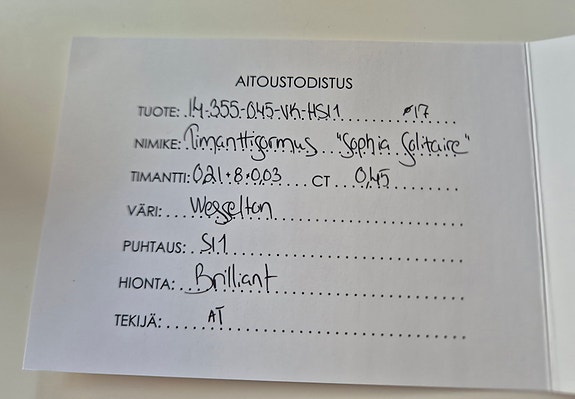 AITOUSTODISTUS
TUOTE: 14-355-045-VK-HSI1 ø17
NIMIKE: Timanttisormus "Sophia Solitaire"
TIMANTTI: 0,21+8×0,03 CT 0,45
VÄRI: Wesselton
PUHTAUS: SI1
HIONTA: Brilliant
TEKIJÄ: AT